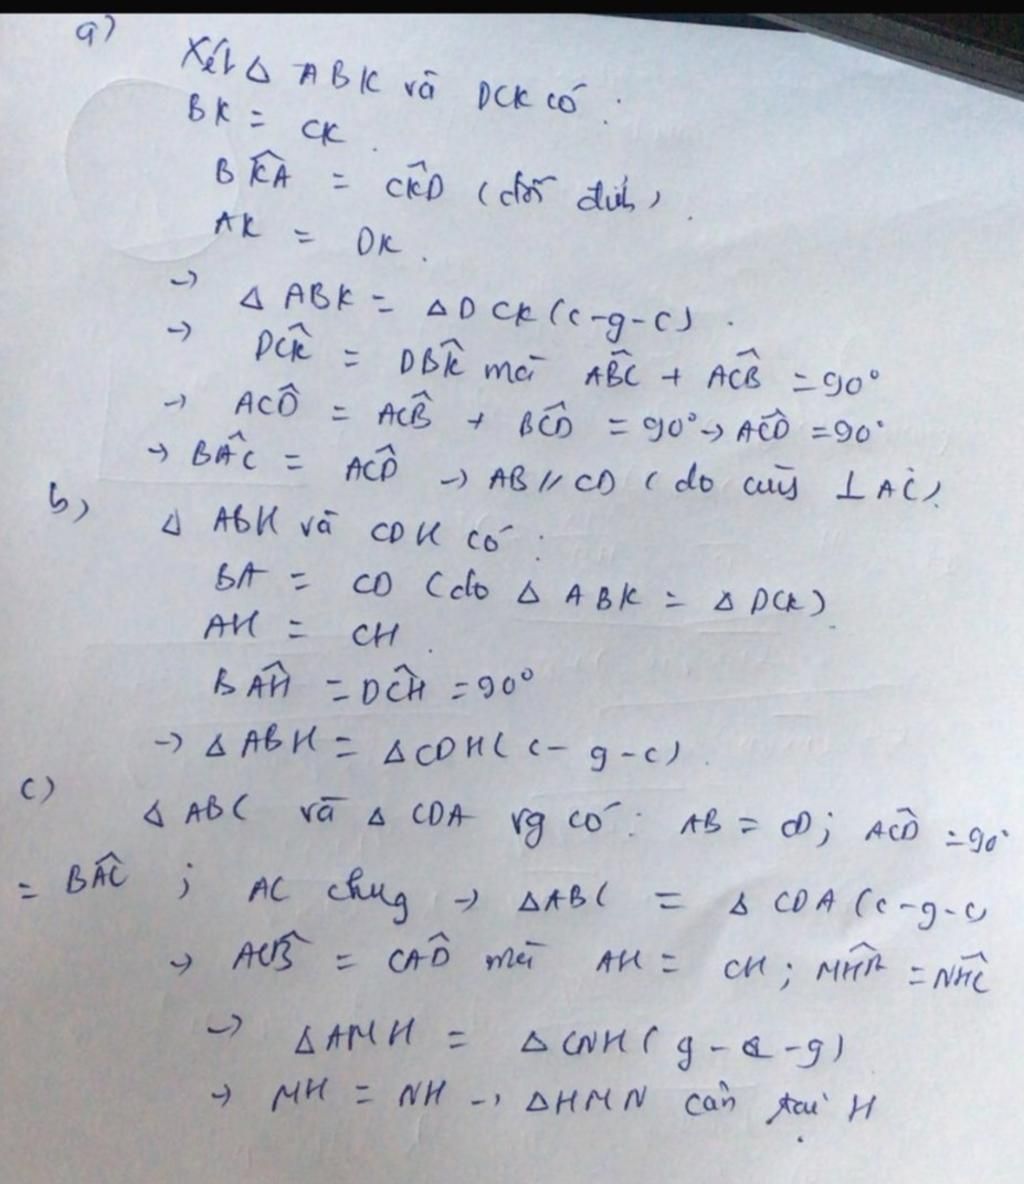 a)
Xét Δ ABK và DCK có :
BK = CK .
BK̂A = CK̂D (đối đỉnh) .
AK = DK .
→ Δ ABK = Δ DCK (c-g-c) .
→ DĈK = DB̂K mà AB̂C + AĈB = 90°
→ AĈD = AĈB + BĈD = 90° → AĈD = 90°
→ BÂC = AĈD → AB // CD ( do cùng ⊥ AC)
b,
Δ ABH và CDH có :
BA = CD (do Δ ABK = Δ DCK)
AH = CH .
BÂH = DĈH = 90°
→ Δ ABH = Δ CDH ( c- g -c) .
c)
Δ ABC và Δ CDA vg có : AB = CD ; AĈD = 90°
= BÂC ; AC chug → ΔABC = Δ CDA (c-g-c
→ AĈB = CÂD mà AH = CH ; MĤA = NĤC
→ ΔAMH = Δ CNH ( g - c -g)
→ MH = NH → ΔHMN cân tại H